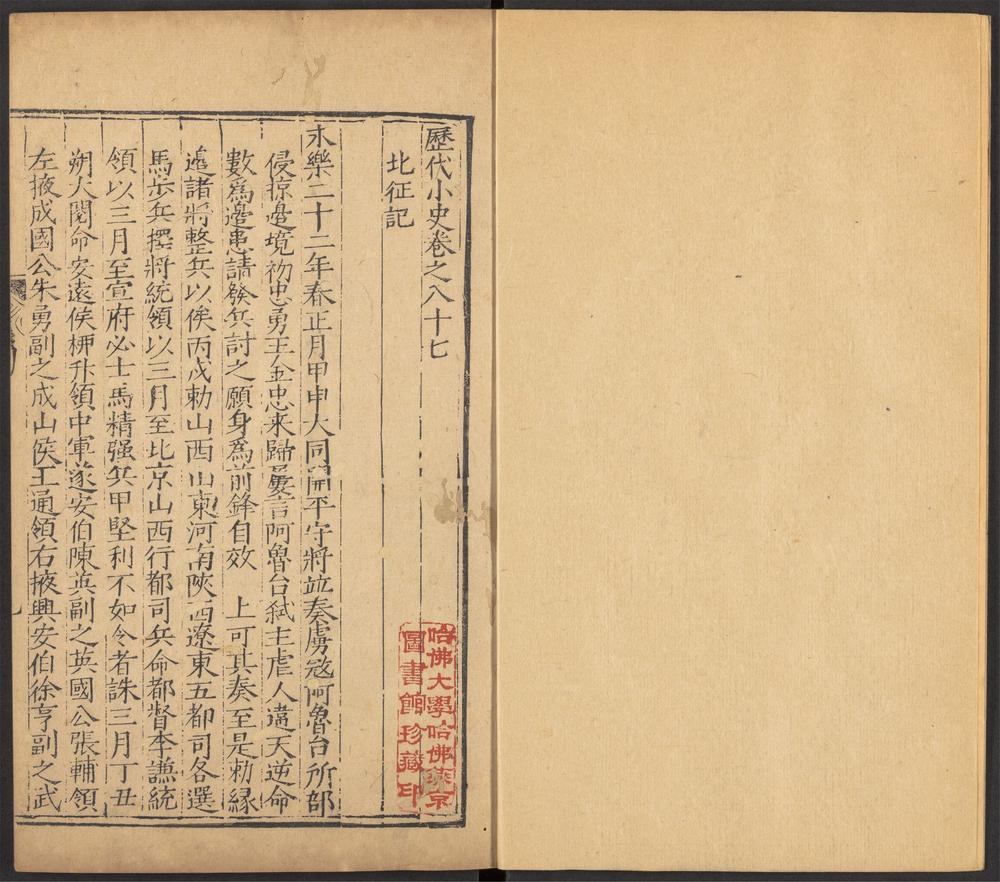 歷代小史卷之八十七
北征記
永樂二十二年春正月甲申大同開平守將竝奏虜寇阿魯台所部
侵掠邊境初忠勇王金忠來歸屢言阿魯台弒主虐人違天逆命
數爲邊患請發兵討之願身爲前鋒自效 上可其奏至是勅緣
邊諸將整兵以俟丙戌勅山西山東河南陝西遼東五都司各選
馬步兵擇將統領以三月至北京山西行都司兵命都督李謙統
領以三月至宣府必士馬精强兵甲堅利不如令者誅三月丁丑
朔大閱命安遠侯栁升領中軍遂安伯陳英副之英國公張輔領
左掖成國公朱勇副之成山侯王通領右掖興安伯徐亨副之武
哈佛大學哈佛燕京
圖書館珍藏印